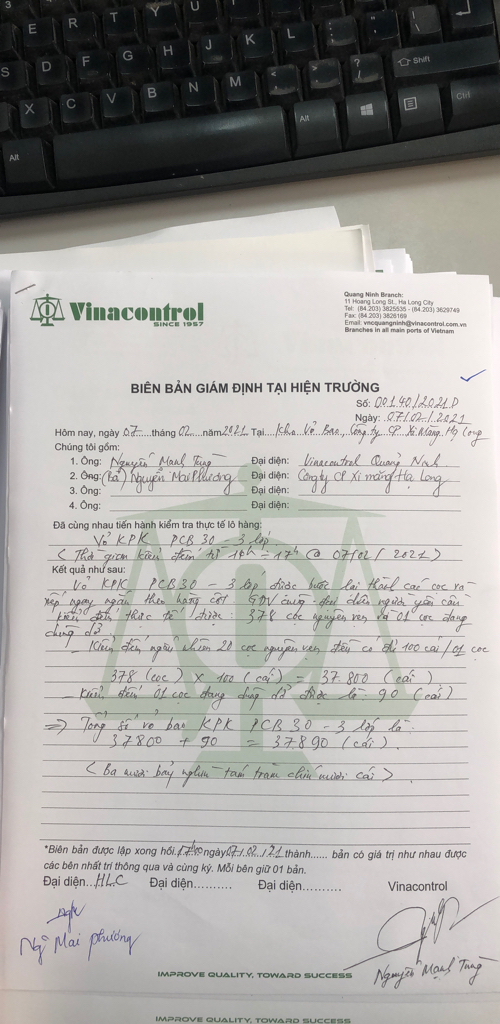 E R T Y U I O P
S D F G H J K L Shift
X C V B N M Alt Ctrl
Alt
Vinacontrol
SINCE 1957
Quang Ninh Branch:
11 Hoang Long St., Ha Long City
Tel: (84.203) 3825535 - (84.203) 3629749
Fax: (84.203) 3826169
Email: vncquangninh@vinacontrol.com.vn
Branches in all main ports of Vietnam
BIÊN BẢN GIÁM ĐỊNH TẠI HIỆN TRƯỜNG
Số: 00140/2021P
Ngày: 07/02/2021
Hôm nay, ngày 07 tháng 02 năm 2021 Tại Kho Vỏ Bao, Công ty CP Xi Măng Hạ Long
Chúng tôi gồm:
1. Ông: Nguyễn Mạnh Tùng Đại diện: Vinacontrol Quảng Ninh
2. Ông: (Bà) Nguyễn Mai Phương Đại diện: Công ty CP Xi măng Hạ Long
3. Ông: Đại diện:
4. Ông: Đại diện:
Đã cùng nhau tiến hành kiểm tra thực tế lô hàng:
Vỏ KPK PCB 30 - 3 lớp
< Thời gian kiểm đếm từ 16h - 17h @ 07/02/2021 >
Kết quả như sau:
Vỏ KPK PCB30 - 3 lớp được buộc lại thành các cọc và
xếp ngay ngắn theo hàng cột GĐV cùng đại diện người yêu cầu
kiểm đếm thực tế được: 378 cọc nguyên vẹn và 01 cọc đang
dùng dở
- Kiểm đếm ngẫu nhiên 20 cọc nguyên vẹn đều có đủ 100 cái / 01 cọc
378 (cọc) x 100 (cái) = 37.800 (cái)
- Kiểm đếm 01 cọc đang dùng dở được là: 90 (cái)
=> Tổng số vỏ bao KPK PCB30 - 3 lớp là:
37800 + 90 = 37890 (cái).
< Ba mươi bảy nghìn tám trăm chín mươi cái >
*Biên bản được lập xong hồi 17h00 ngày 07/02/21 thành...... bản có giá trị như nhau được
các bên nhất trí thông qua và cùng ký. Mỗi bên giữ 01 bản.
Đại diện HLC Đại diện.......... Đại diện.......... Vinacontrol
Ng Mai Phương
Nguyễn Mạnh Tùng
IMPROVE QUALITY, TOWARD SUCCESS
IMPROVE QUALITY, TOWARD SUCCESS